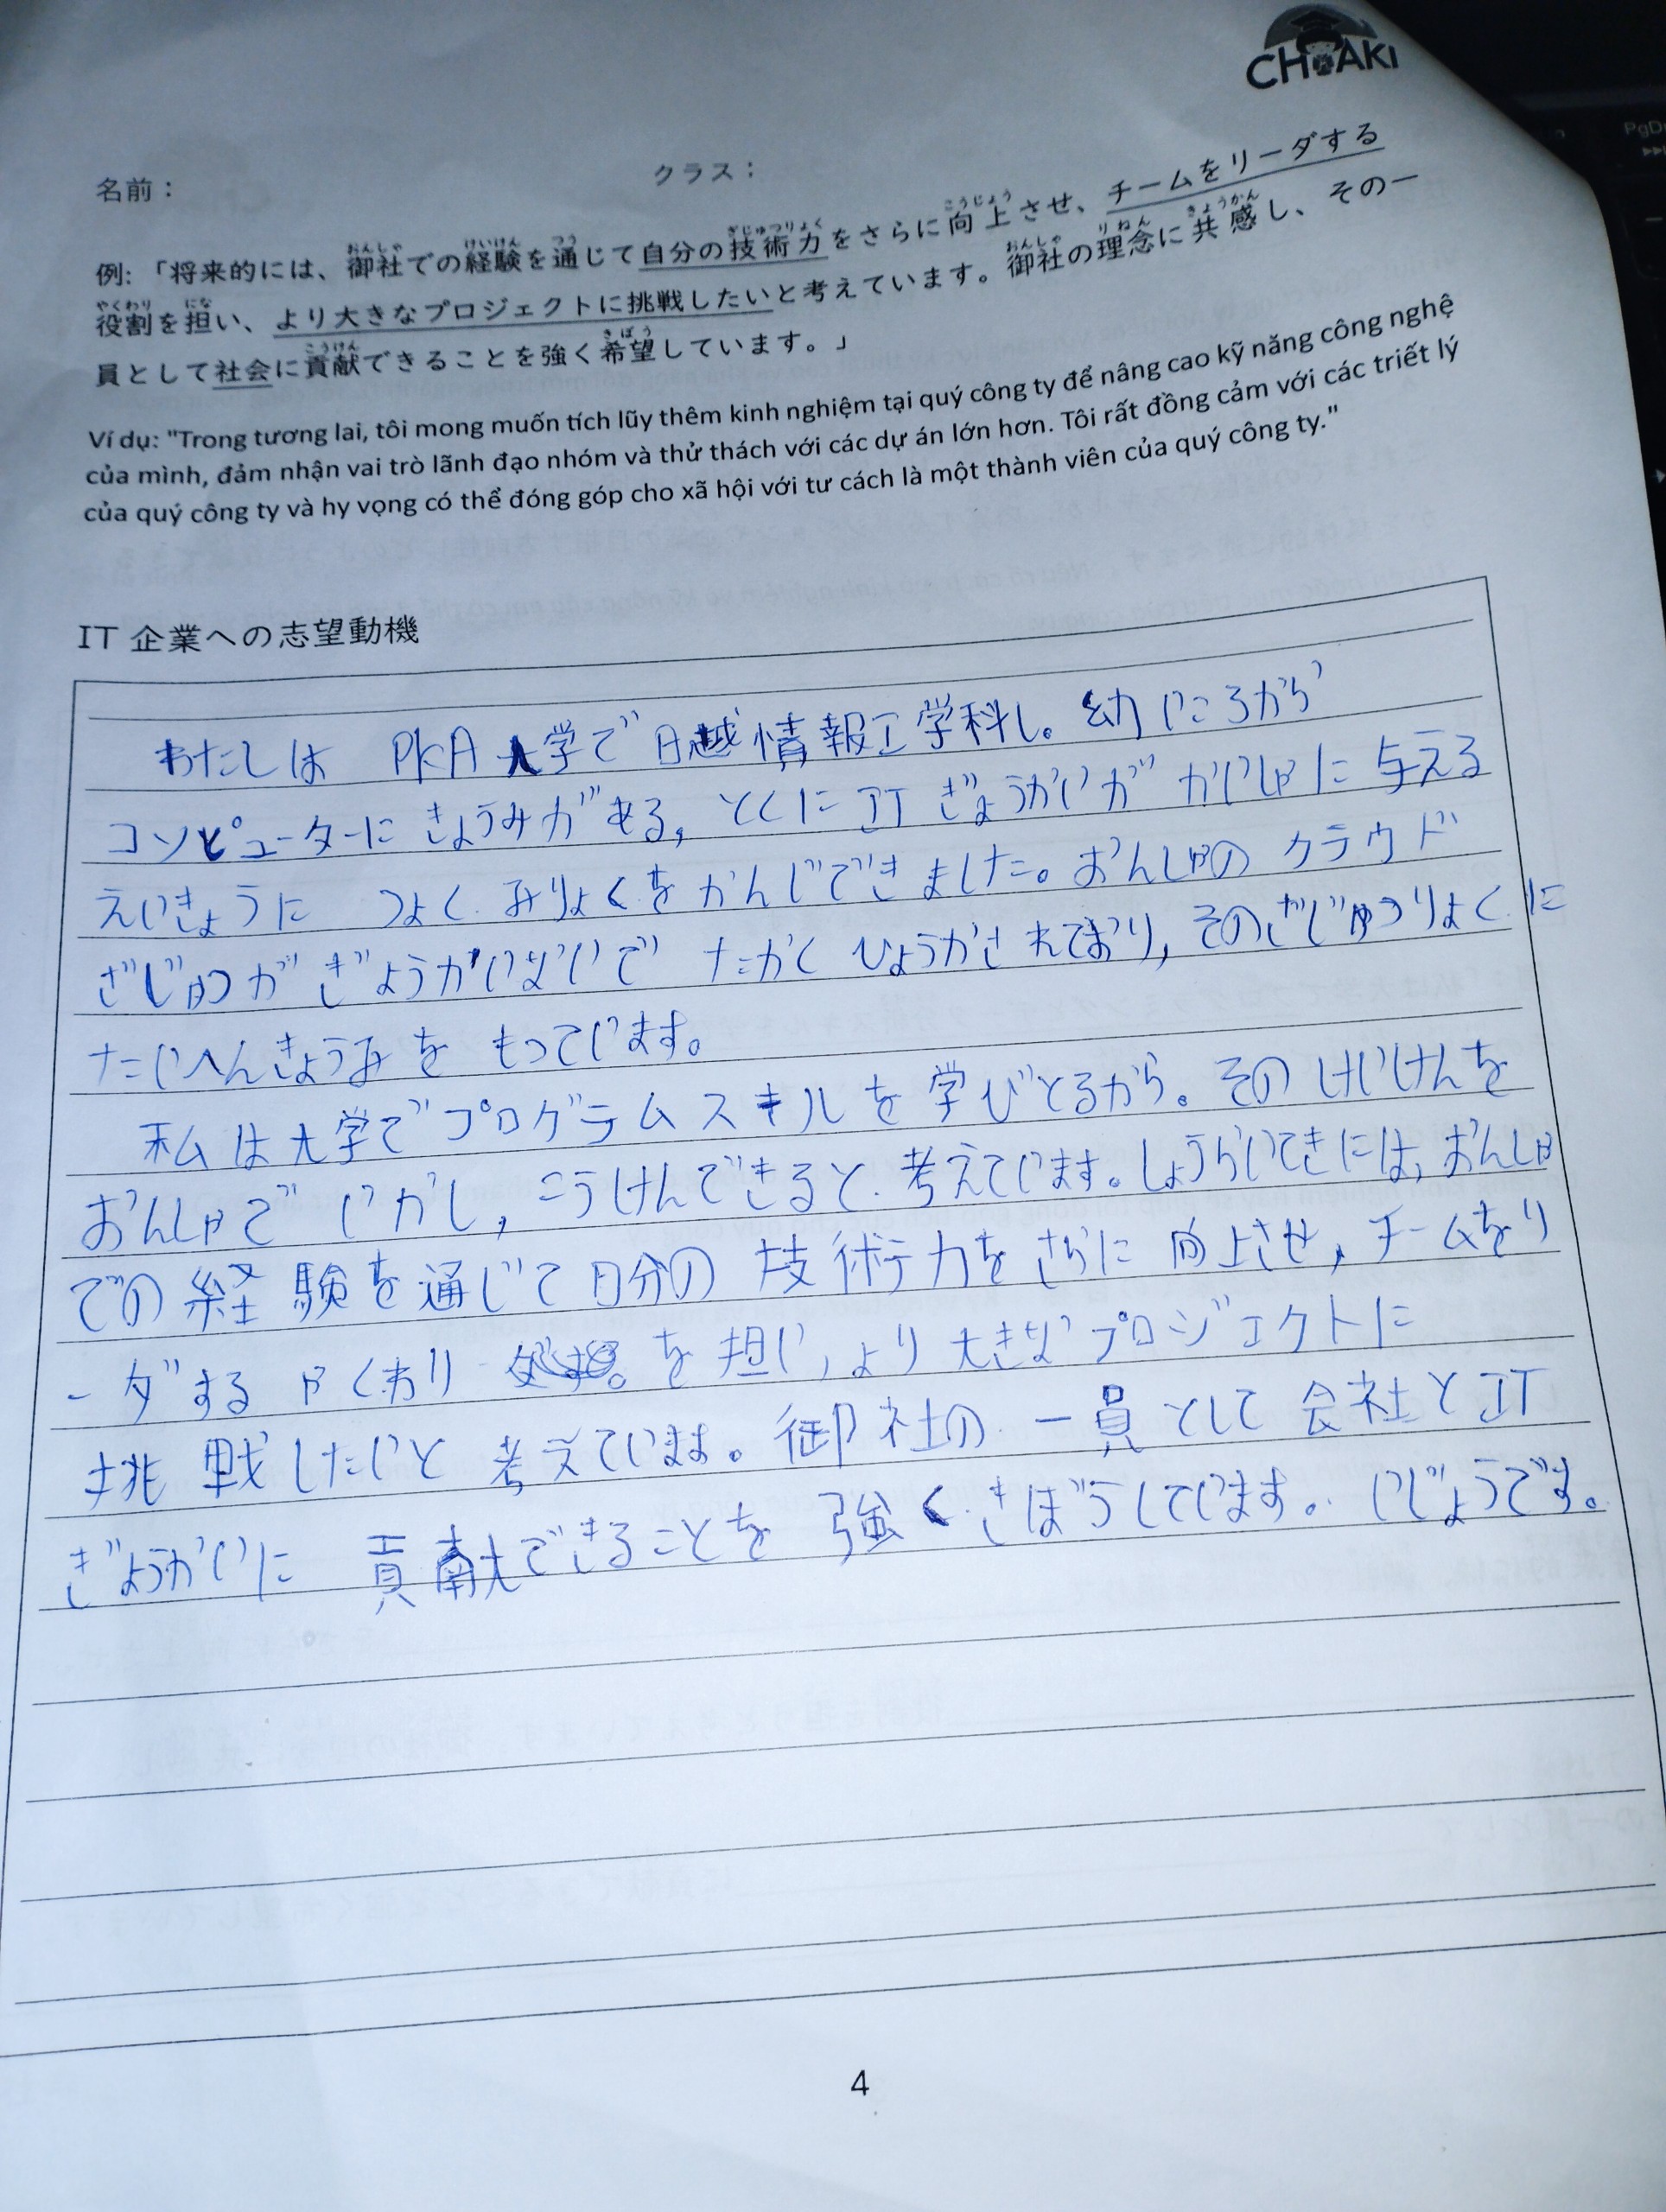 CHIAKI
名前：
クラス：
例: 「将来的には、御社での経験を通じて自分の技術力をさらに向上させ、チームをリーダする
役割を担い、より大きなプロジェクトに挑戦したいと考えています。御社の理念に共感し、その一
員として社会に貢献できることを強く希望しています。」
Ví dụ: "Trong tương lai, tôi mong muốn tích lũy thêm kinh nghiệm tại quý công ty để nâng cao kỹ năng công nghệ
của mình, đảm nhận vai trò lãnh đạo nhóm và thử thách với các dự án lớn hơn. Tôi rất đồng cảm với các triết lý
của quý công ty và hy vọng có thể đóng góp cho xã hội với tư cách là một thành viên của quý công ty."
IT 企業への志望動機
わたしは PKA 大学で日越情報工学科し。幼いころから
コンピューターにきょうみがある, とくに IT ぎょうかいが かいしゃに与える
えいきょうに つよく みりょくをかんじできました。おんしゃの クラウド
ぎじゅつが ぎょうかいないで たかく ひょうかされており, そのぎじゅつりょくに
たいへんきょうみを もっています。
私は大学でプログラムスキルを学びとるから。そのけいけんを
おんしゃで いかし, こうけんできると 考えています。しょうらいてきには, おんしゃ
での経験を通じて自分の技術力をさらに向上させ, チームをリ
ーダする やくわり を担い, より大きなプロジェクトに
挑戦したいと考えています。御社の一員として会社とIT
ぎょうかいに 貢献できることを強くきぼうしています。いじょうです。
4